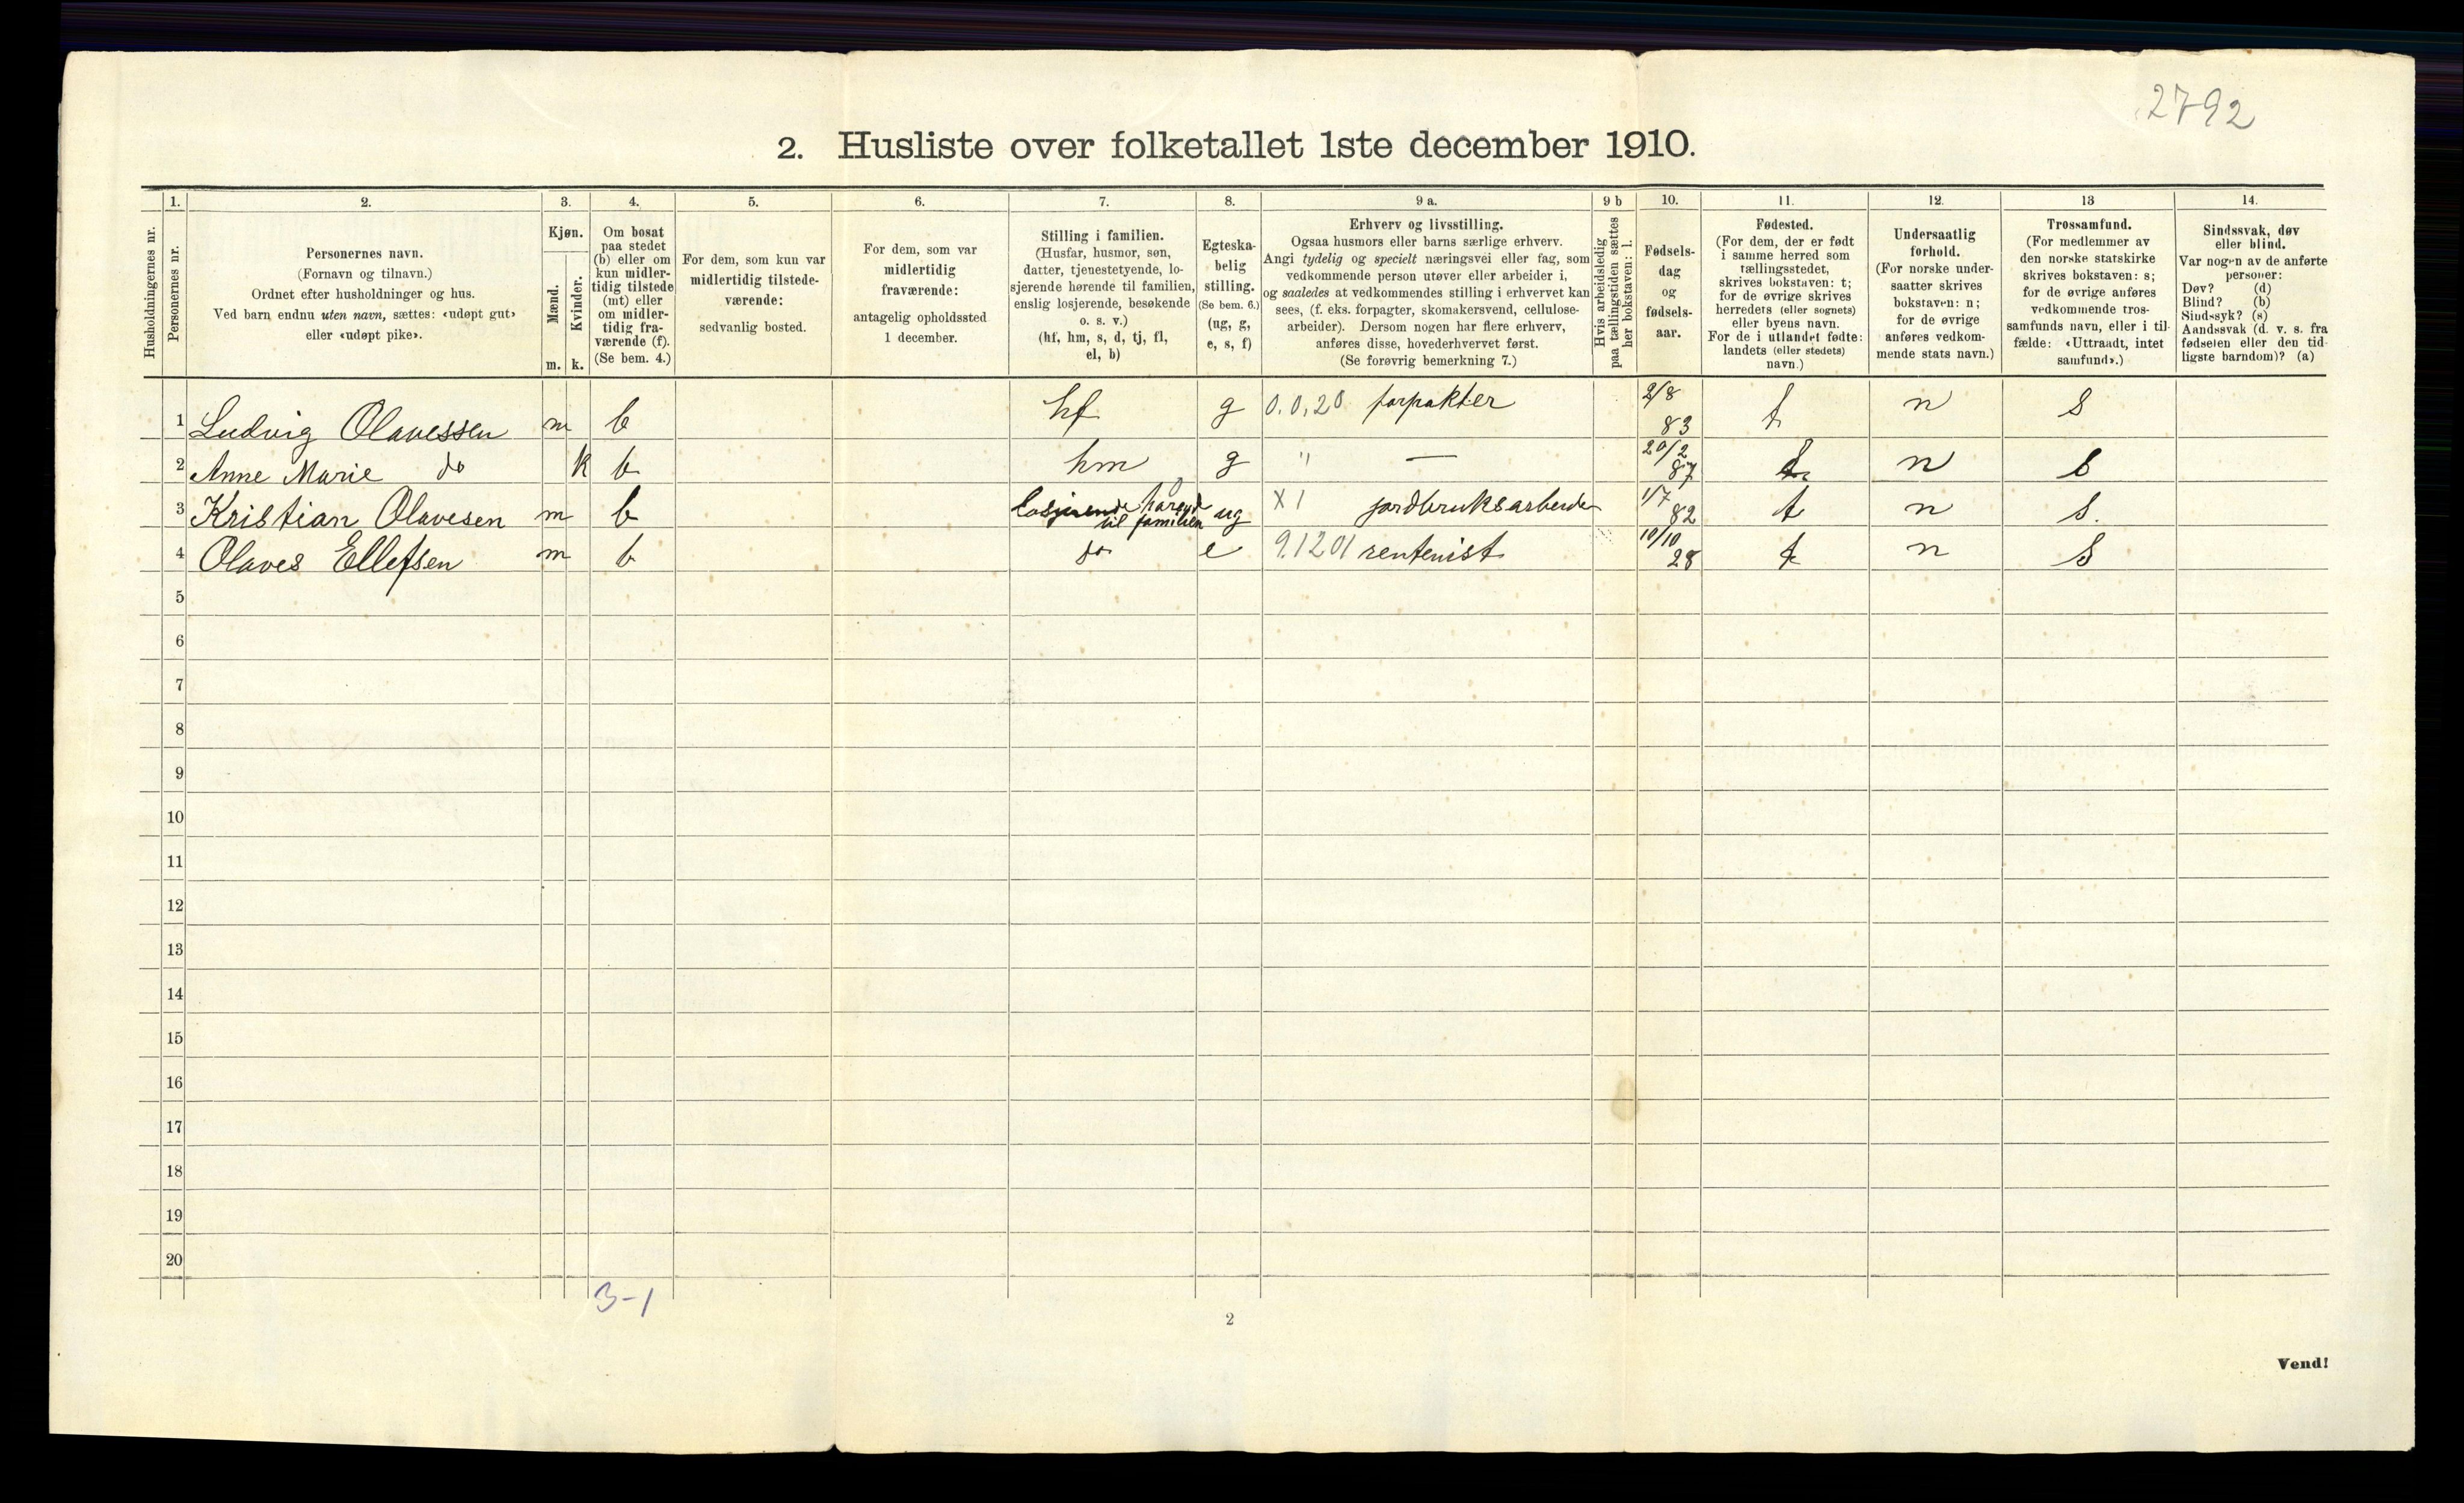 2792
2. Husliste over folketallet 1ste december 1910.
Husholdningernes nr.
1.
Personernes nr.
2.
Personernes navn.
(Fornavn og tilnavn.)
Ordnet efter husholdninger og hus.
Ved barn endnu uten navn, sættes: «udøpt gut»
eller «udøpt pike».
3.
Kjøn.
Mænd.
Kvinder.
m. k.
4.
Om bosat
paa stedet
(b) eller om
kun midler-
tidig tilstede
(mt) eller
om midler-
tidig fra-
værende (f).
(Se bem. 4.)
5.
For dem, som kun var
midlertidig tilstede-
værende:
sedvanlig bosted.
6.
For dem, som var
midlertidig
fraværende:
antagelig opholdssted
1 december.
7.
Stilling i familien.
(Husfar, husmor, søn,
datter, tjenestetyende, lo-
sjerende hørende til familien,
enslig losjerende, besøkende
o. s. v.)
(hf, hm, s, d, tj, fl,
el, b)
8.
Egteska-
belig
stilling.
(Se bem. 6.)
(ug, g,
e, s, f)
9 a.
Erhverv og livsstilling.
Ogsaa husmors eller barns særlige erhverv.
Angi tydelig og specielt næringsvei eller fag, som
vedkommende person utøver eller arbeider i,
og saaledes at vedkommendes stilling i erhvervet kan
sees, (f. eks. forpagter, skomakersvend, cellulose-
arbeider). Dersom nogen har flere erhverv,
anføres disse, hovederhvervet først.
(Se forøvrig bemerkning 7.)
9 b
Hvis arbeidsledig
paa tællingstiden sættes
her bokstaven: l.
10.
Fødsels-
dag
og
fødsels-
aar.
11.
Fødested.
(For dem, der er født
i samme herred som
tællingsstedet,
skrives bokstaven: t;
for de øvrige skrives
herredets (eller sognets)
eller byens navn.
For de i utlandet fødte:
landets (eller stedets)
navn.)
12.
Undersaatlig
forhold.
(For norske under-
saatter skrives
bokstaven: n;
for de øvrige
anføres vedkom-
mende stats navn.)
13
Trossamfund.
(For medlemmer av
den norske statskirke
skrives bokstaven: s;
for de øvrige anføres
vedkommende tros-
samfunds navn, eller i til-
fælde: «Uttraadt, intet
samfund».)
14.
Sindssvak, døv
eller blind.
Var nogen av de anførte
personer:
Døv? (d)
Blind? (b)
Sindssyk? (s)
Aandssvak (d. v. s. fra
fødselen eller den tid-
ligste barndom)? (a)
1 Ludvig Olavessen m b hf g 0.0,20 forpakter 2/8 83 t n s
2 Anne Marie do k b hm g " — 20/2 87 t n s
3 Kristian Olavesen m b losjerende hørende til familien ug X 1 jordbruksarbeider 1/7 82 t n s.
4 Olaves Ellefsen m b do e 9.1201 rentenist 10/10 28 t n s
5
6
7
8
9
10
11
12
13
14
15
16
17
18
19
20
3-1
2
Vend!